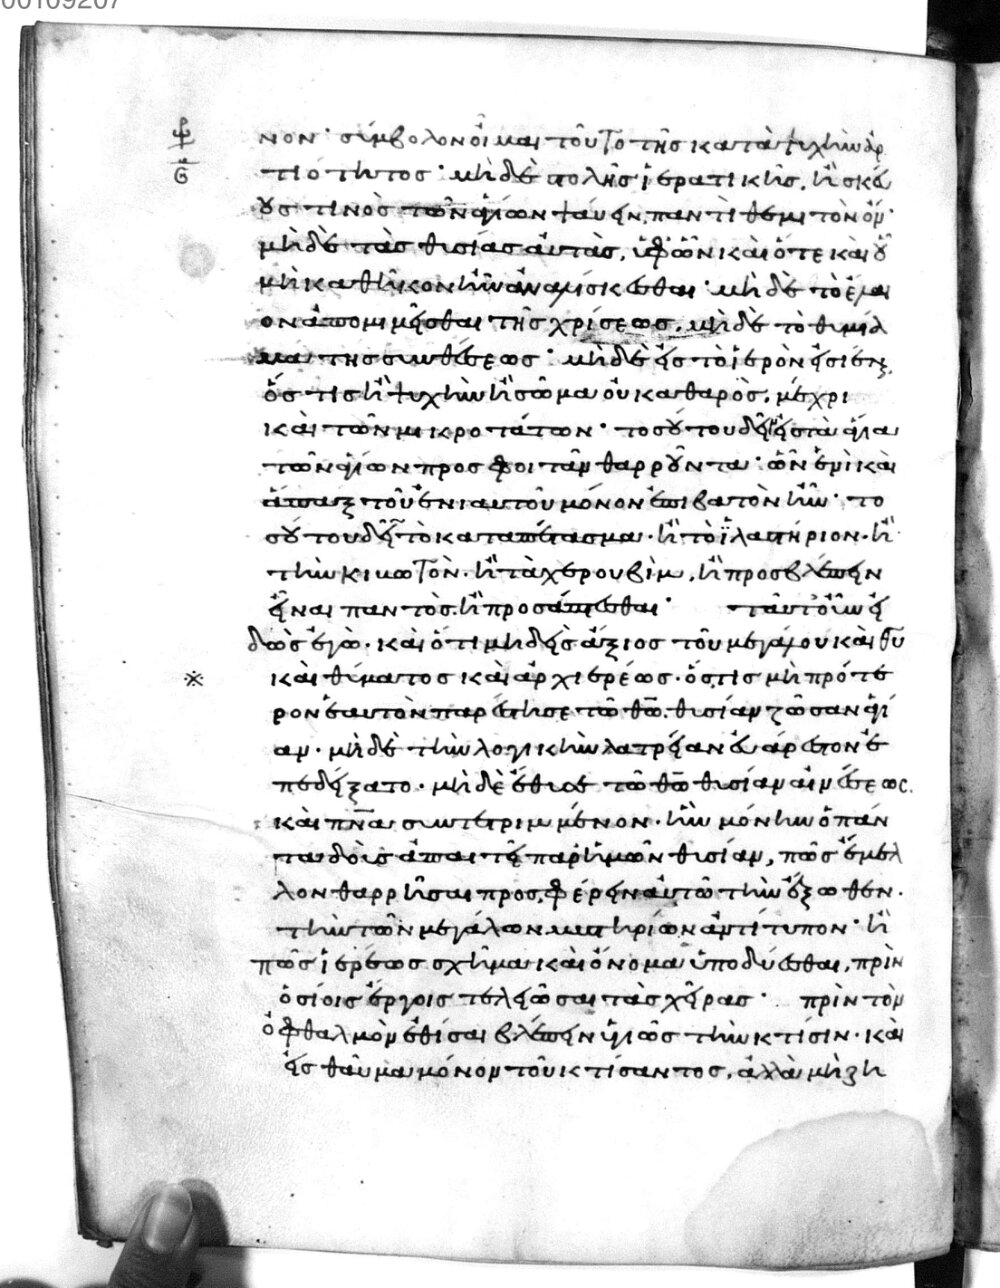 00109207
νον· σύμβολον οἶμαι τοῦτο τῆς κατὰ ψυχὴν ἀρ
τιότητος· μηδὲ στολῆς ἱερατικῆς, ἢ σκεύ
ους τινὸς τῶν ἁγίων ψαύειν παντὶ θεμιτὸν ὄν·
μηδὲ τὰς θυσίας αὐτὰς, ὑφ' ὧν καὶ ὅτε καὶ οὗ
μὴ καθῆκον ἦν ἀναλίσκεσθαι· μηδὲ τὸ ἔλαι
ον ἀπομιμεῖσθαι τῆς χρίσεως, μηδὲ τὸ θυμία
μα τῆς συνθέσεως· μηδὲ εἰς τὸ ἱερὸν εἰσιέναι,
ὅστις ἢ ψυχὴν ἢ σῶμα οὐ καθαρὸς, μέχρι
καὶ τῶν μικροτάτων· τοσούτου δεῖ εἰς τὰ ἅγια
τῶν ἁγίων προσφοιτᾶν θαρροῦντα· ὧν ἑνὶ καὶ
ἅπαξ τοῦ ἐνιαυτοῦ μόνον ἐπιβατὸν ἦν· το
σούτου δεῖ τὸ καταπέτασμα· ἢ τὸ ἱλαστήριον· ἢ
τὴν κιβωτὸν· ἢ τὰ χερουβὶμ, ἢ προσβλέπειν
εἶναι παντὸς, ἢ προσάπτεσθαι· ταῦτ' οὖν εἰ
δὼς ἐγὼ· καὶ ὅτι μηδεὶς ἄξιος τοῦ μεγάλου καὶ θυ
※ καὶ θύματος καὶ ἀρχιερέως· ὅστις μὴ πρότε
ρον ἑαυτὸν παρέστησε τῶ θω, θυσίαν ζῶσαν ἁγί
αν· μηδὲ τὴν λογικὴν λατρείαν εὐάρεστον ἐ
πεδείξατο· μηδὲ ἔθυσε τῶ θω θυσίαν αἰνέσεως.
καὶ πνα συντετριμμένον· ἣν μόνην ὁ πάν
τα δοὺς ἀπαιτεῖ παρ' ἡμῶν θυσίαν, πῶς ἔμελ
λον θαρρῆσαι προσφέρειν αὐτῶ τὴν ἔξωθεν·
τὴν τῶν μεγάλων μυστηρίων ἀντίτυπον· ἢ
πῶς ἱερέως σχῆμα καὶ ὄνομα ὑποδύεσθαι, πρὶν
ὁσίοις ἔργοις τελειῶσαι τὰς χεῖρας· πρὶν τὸν
ὀφθαλμὸν ἐθίσαι βλέπειν ὑγιῶς τὴν κτίσιν· καὶ
εἰς θαῦμα μόνον τοῦ κτίσαντος, ἀλλὰ μὴ ζη